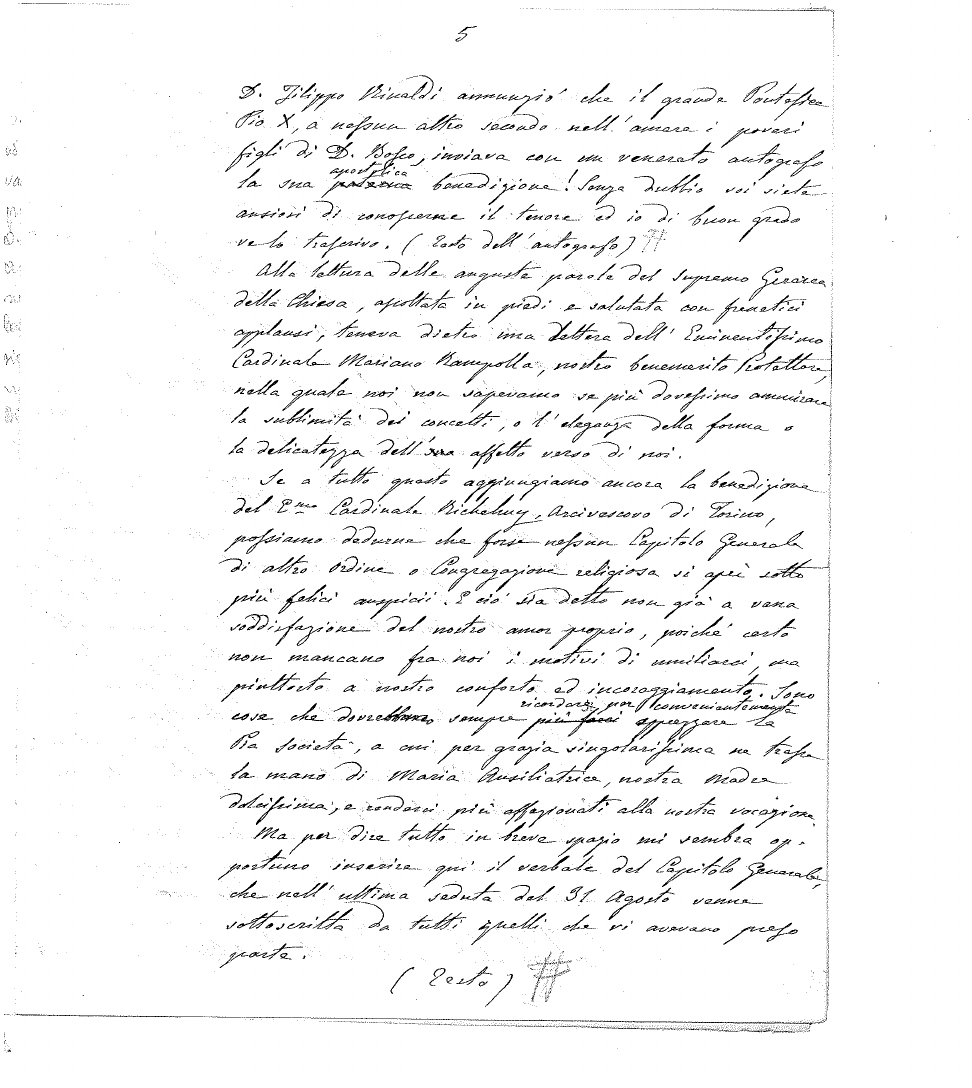 5
D. Filippo Rinaldi annunziò che il grande Pontefice
Pio X, a nessun altro secondo nell'amare i poveri
figli di D. Bosco, inviava con un venerato autografo
apostolica
la sua paterna benedizione! Senza dubbio voi siete
ansiosi di conoscerne il tenore ed io di buon grado
ve lo trascrivo. (Testo dell'autografo) #
Alla lettura delle auguste parole del Supremo Gerarca
della Chiesa, ascoltata in piedi e salutata con frenetici
applausi, teneva dietro una lettera dell'Eminentissimo
Cardinale Mariano Rampolla, nostro benemerito Protettore,
nella quale noi non sapevamo se più dovessimo ammirare
la sublimità dei concetti, o l'eleganza della forma o
la delicatezza dell'sua affetto verso di noi.
Se a tutto questo aggiungiamo ancora la benedizione
del E.mo Cardinale Richelmy, Arcivescovo di Torino,
possiamo dedurne che forse nessun Capitolo Generale
di altro Ordine o Congregazione religiosa si aprì sotto
più felici auspicii. E ciò sia detto non già a vana
soddisfazione del nostro amor proprio, poiché certo
non mancano fra noi i motivi di umiliarci, ma
piuttosto a nostro conforto ed incoraggiamento. Sono
ricordarsi per convenientemente
cose che dovrebbero sempre più farci apprezzare la
Pia Società, a cui per grazia singolarissima ne trasse
la mano di Maria Ausiliatrice, nostra Madre
dolcissima, e renderci più affezionati alla nostra vocazione.
Ma per dire tutto in breve spazio mi sembra op-
portuno inserire qui il verbale del Capitolo Generale,
che nell'ultima seduta del 31 Agosto venne
sottoscritta da tutti quelli che vi avevano preso
parte.
(Testo) #